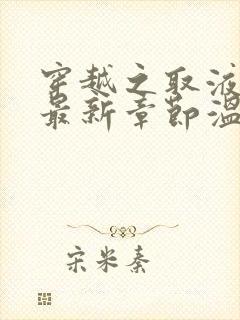 穿越之取液
最新章节温
宋米秦